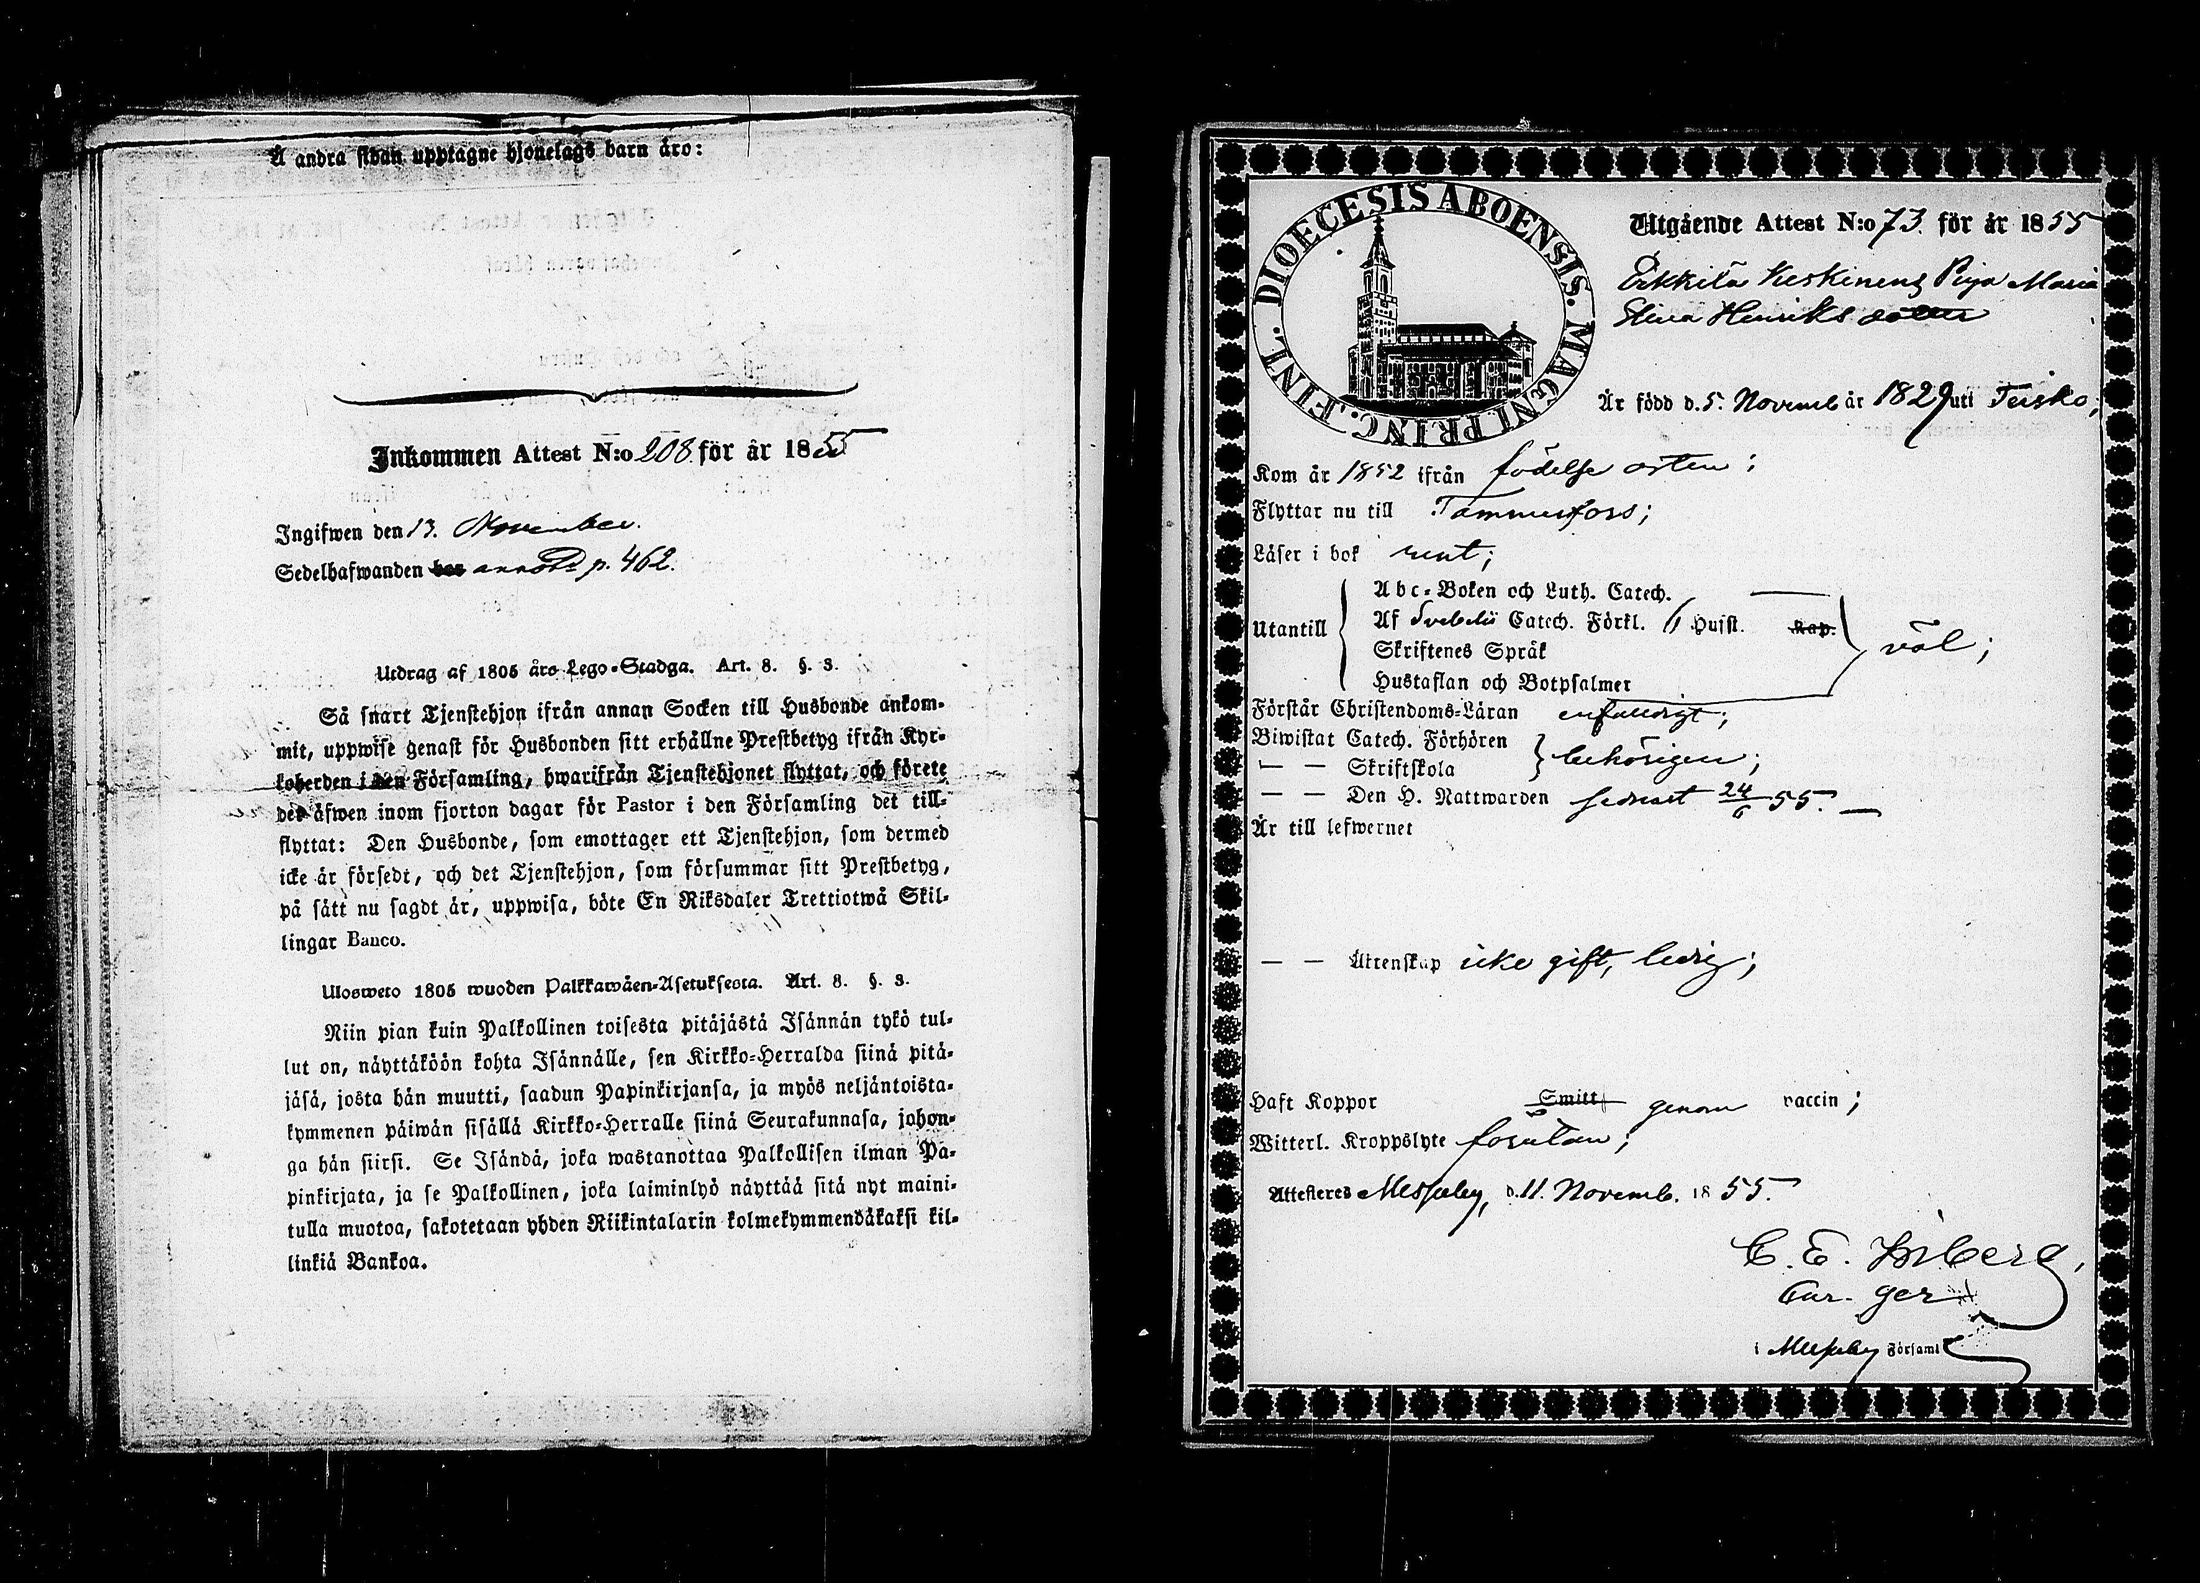 Å andra sidan upptagne hjonelags barn äro:
Inkommen Attest N:o 208. för år 1855
Ingifwen den 13. November.
Sedelhafwanden bor annot. p. 462.
Utdrag af 1805 års Lego-Stadga. Art. 8. §. 3.
Så snart Tjenstehjon ifrån annan Socken till Husbonde ankom-
mit, uppwise genast för Husbonden sitt erhållne Prestbetyg ifrån Kyr-
koherden i den Församling, hwarifrån Tjenstehjonet flyttat, och förete
det äfwen inom fjorton dagar för Pastor i den Församling det till-
flyttat: Den Husbonde, som emottager ett Tjenstehjon, som dermed
icke är försedt, och det Tjenstehjon, som försummar sitt Prestbetyg,
på sätt nu sagdt är, uppwisa, böte En Riksdaler Trettiotwå Skil-
lingar Banco.
Ulosweto 1805 wuoden Palkkawäen-Asetuksesta. Art. 8. §. 3.
Niin pian kuin Palkollinen toisesta pitäjästä Isännän tykö tul-
lut on, näyttäköön kohta Isännälle, sen Kirkko-Herralda siinä pitä-
jäsä, josta hän muutti, saadun Papinkirjansa, ja myös neljäntoista-
kymmenen päiwän sisällä Kirkko-Herralle siinä Seurakunnasa, johon-
ga hän siirsi. Se Isändä, joka wastanottaa Palkollisen ilman Pa-
pinkirjata, ja se Palkollinen, joka laiminlyö näyttää sitä nyt maini-
tulla muotoa, sakotetaan yhden Riikintalarin kolmekymmendäkaksi kil-
linkiä Bankoa.
DIOECESIS ABOENSIS. MAGNI PRINC. FINL.
Utgående Attest N:o 73. för år 1855
Erkkilä Keskinens Piga Maria
Elina Henriks dotter
Är född d. 5. Novemb år 1829 uti Teisko;
Kom år 1852 ifrån födelse orten;
Flyttar nu till Tammerfors;
Läser i bok rent;
Abc-Boken och Luth. Catech.
Utantill Af Svebelii Catech. Förkl. 6 Hufst. Kap. väl;
Skriftenes Språk
Hustaflan och Botpsalmer
Förstår Christendoms-Läran enfaldigt;
Biwistat Catech. Förhören
— — Skriftskola behörigen;
— — Den H. Nattwarden senast 24/6 55. —
Är till lefwernet
— — Äktenskap icke gift, ledig;
Haft Koppor Smitt genom vaccin;
Witterl. Kroppslyte förutan;
Attesteres Messuby, d. 11. Novemb. 1855.
C. E.
ger
i Messuby Församl